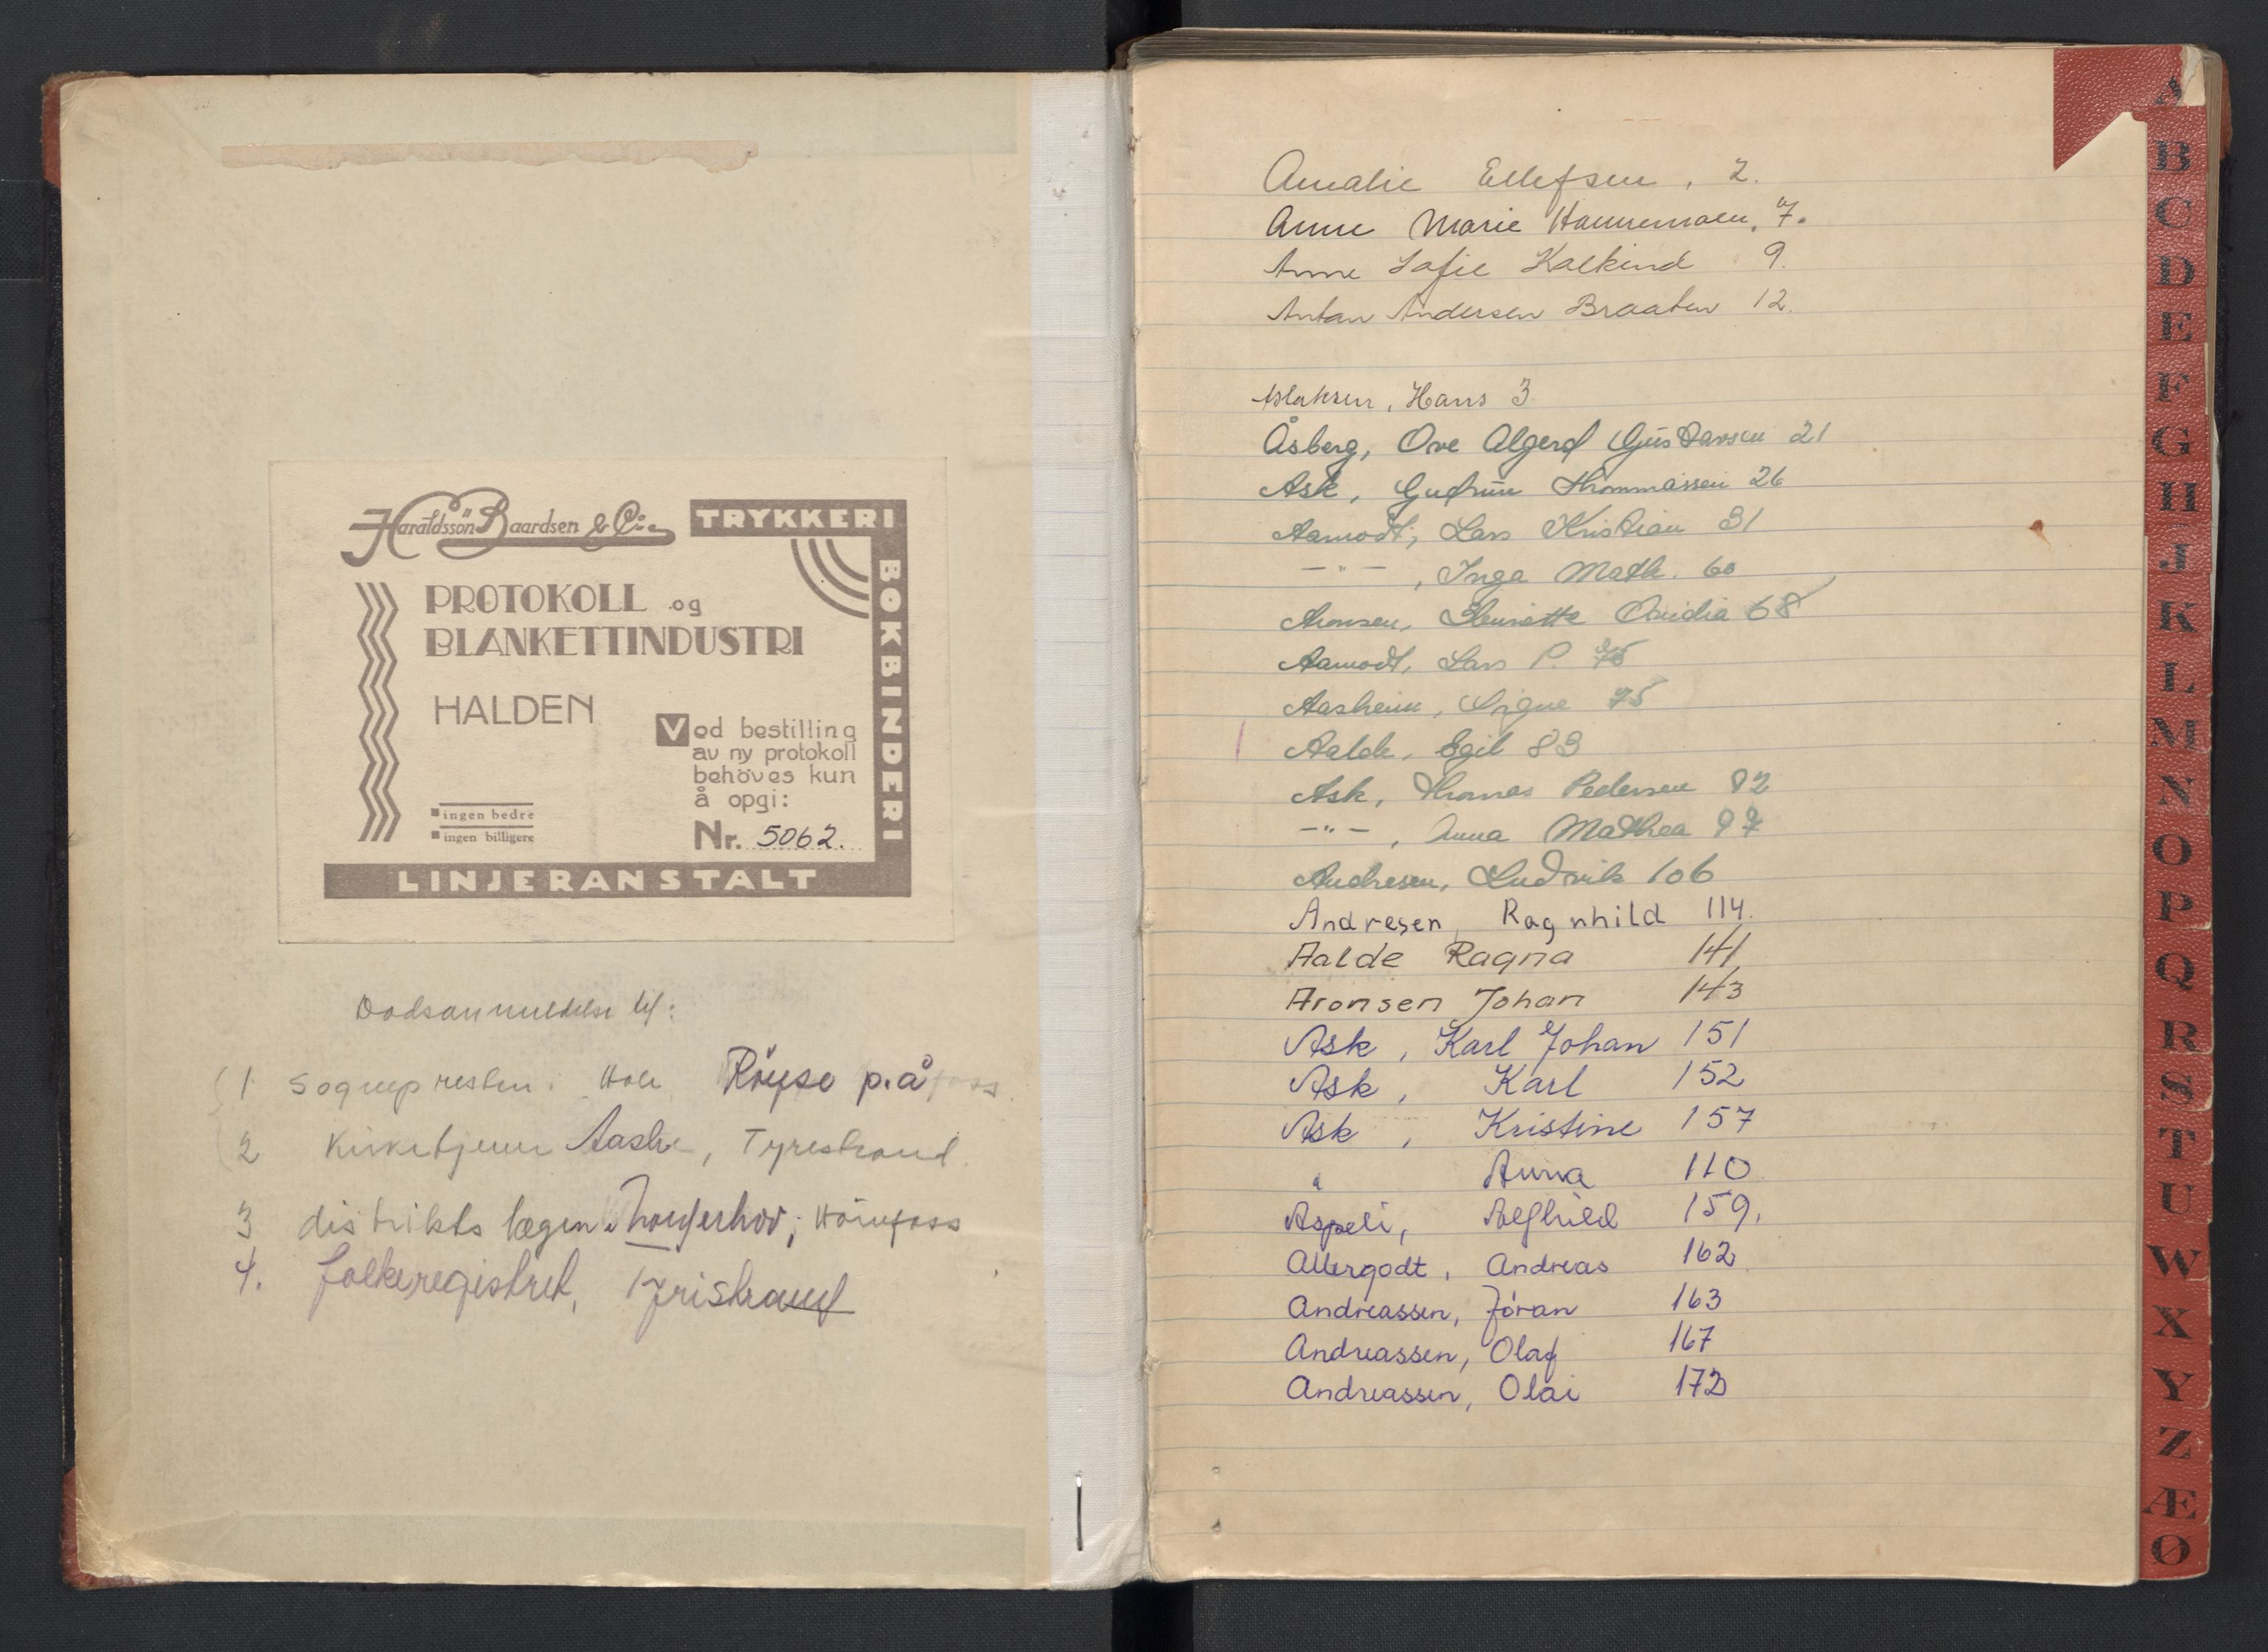 Haraldssön Baardsen & Co
TRYKKERI
BOKBINDERI
PROTOKOLL og
BLANKETTINDUSTRI
HALDEN
Ved bestilling
av ny protokoll
behöves kun
å opgi:
Nr. 5062.
ingen bedre
ingen billigere
LINJERANSTALT
Dødsanmeldelse til:
1 Sognepresten: Hole Röyse p.å
2 Kirketjener Aaslie, Tyrestrand.
3 distriktslægen, Hönefoss
4. folkeregistret, Tyristrand
Amalie Ellefsen, 2.
Anne Marie 7.
Anne Sofie 9.
Anton Andersen Braaten 12.
Aslaksen, Hans 3
Åsberg, Ove Algerd Gustavsen 21
Ask, Gudrun Thommassen 26
Aamodt, Lars Kristian 31
-"-, Inga Math. 60
Aronsen, Henriette 68
Aamodt, Lars P. 75
Aasheim, Signe 75
Aalde, Egil 83
Ask, Thomas Pedersen 92
-"-, Anna Mathea 97
Andresen, Ludvik 106
Andresen, Ragnhild 114.
Aalde Ragna 141
Aronsen Johan 143
Ask, Karl Johan 151
Ask, Karl 152
Ask, Kristine 157
" Anna 110
Aspeli, Alfhild 159.
Allergodt, Andreas 162
Andreassen, Jöran 163
Andreassen, Olaf 167
Andreassen, Olai 172
A
B
C
D
E
F
G
H
I
J
K
L
M
N
O
P
Q
R
S
T
U
W
X
Y
Z
Æ
Ø